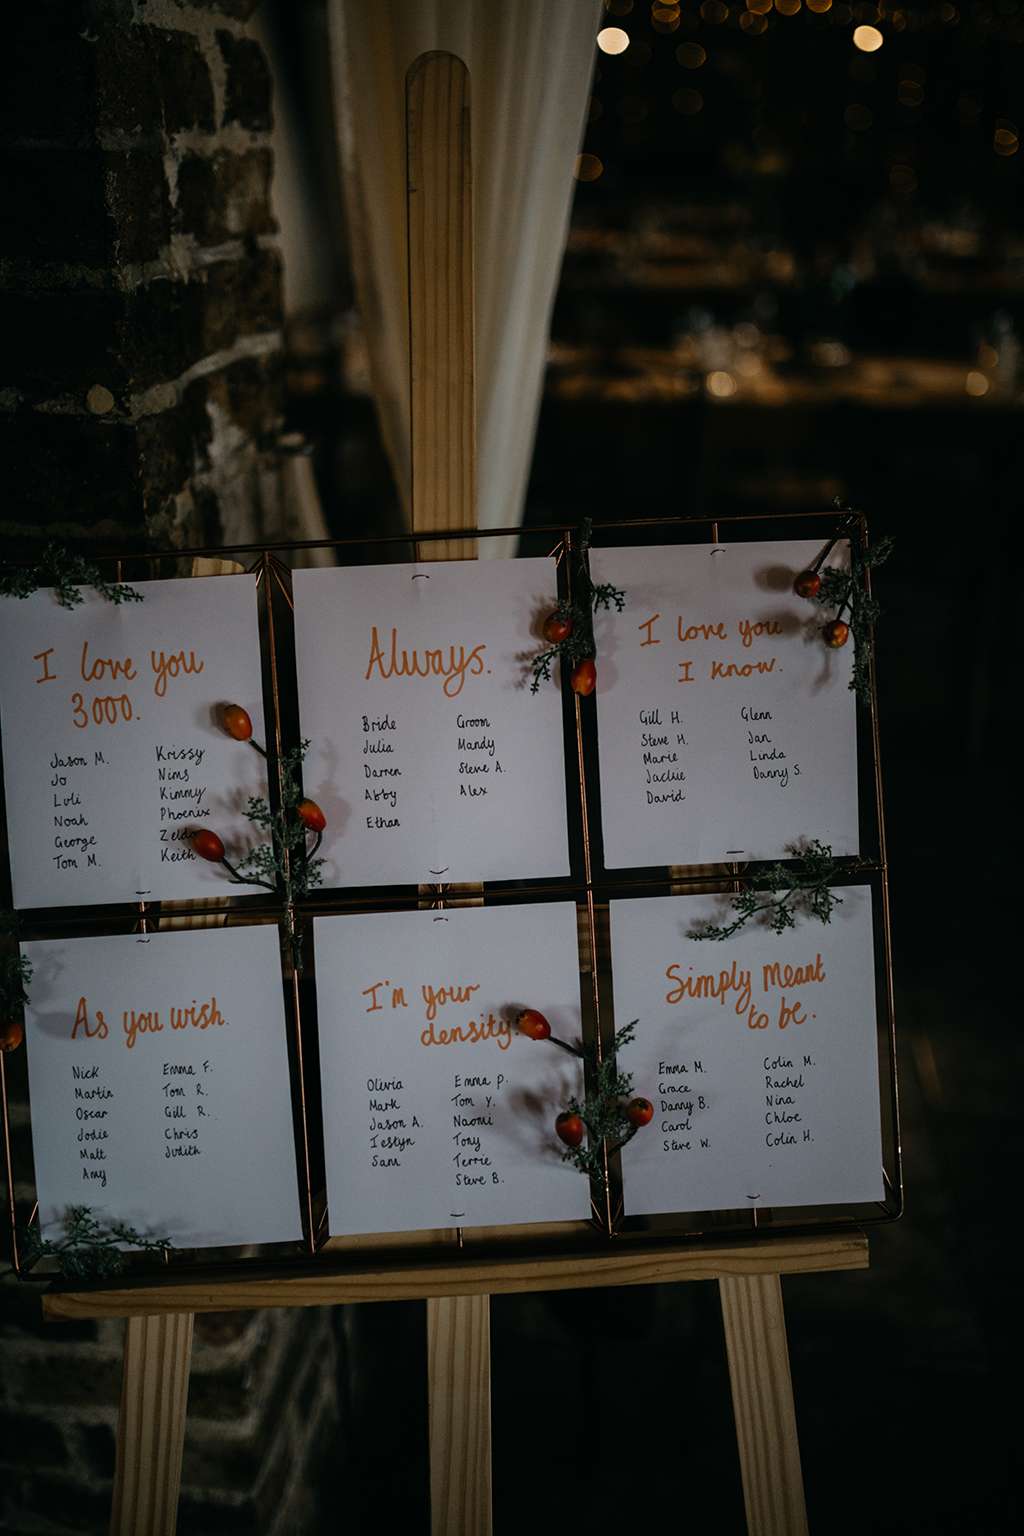 I love you
3000.
Jason M.
Jo
Luli
Noah
George
Tom M.
Krissy
Nims
Kimmy
Phoenix
Zelda
Keith
Always.
Bride
Julia
Darren
Abby
Ethan
Groom
Mandy
Steve A.
Alex
I love you
I know.
Gill H.
Steve H.
Marie
Jackie
David
Glenn
Jan
Linda
Danny S.
As you wish.
Nick
Martin
Oscar
Jodie
Matt
Amy
Emma F.
Tom R.
Gill R.
Chris
Judith
I'm your
density.
Olivia
Mark
Jason A.
Iestyn
Sam
Emma P.
Tom Y.
Naomi
Tony
Terrie
Steve B.
Simply Meant
to be.
Emma M.
Grace
Danny B.
Carol
Steve W.
Colin M.
Rachel
Nina
Chloe
Colin H.